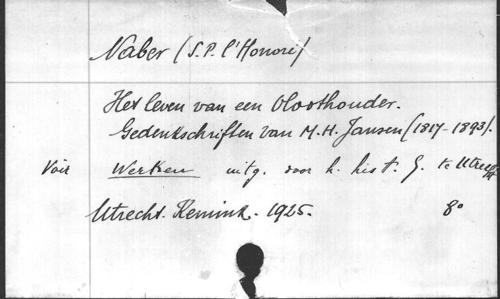 Naber (S.P. l'Honoré)
Het leven van een vloothouder.
Gedenkschriften van M.H. Jansen (1817-1893).
Voir Werken uitg. door h. hist. G. te Utrecht
Utrecht. Kemink. 1925. 8°